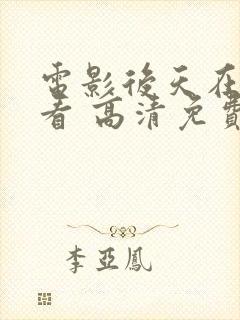 電影後天在
看 高清免費
李亞鳳